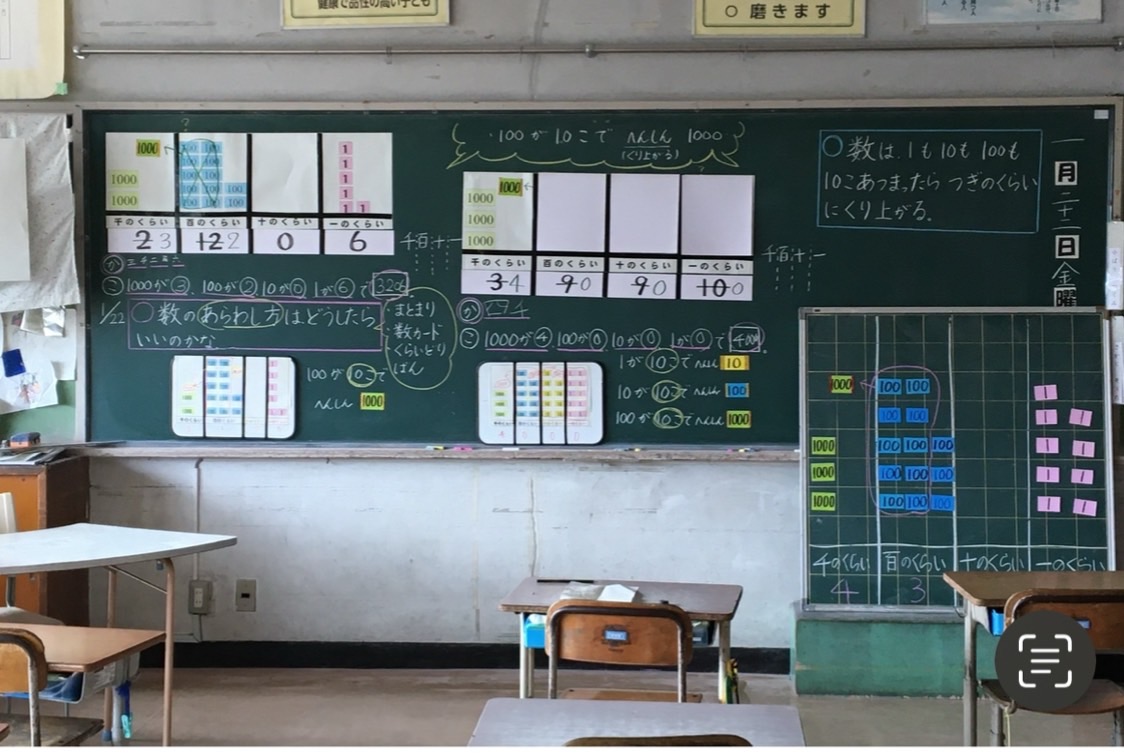 健康で品性の高い子ども
○ 磨きます
1000
1000
1000
100 100
100 100
100 100
100 100 100
100 100 100
1
1
1
1
1 1
千のくらい 百のくらい 十のくらい 一のくらい
2 3 12 2 0 6
千百十一
か 三千二百六
こ 1000が③ 100が② 10が⓪ 1が⑥で 3206
1/22
○数のあらわし方はどうしたら
いいのかな
まとまり
数カード
くらいどり
ばん
100が10こで
へんしん 1000
・100が10こで へんしん 1000
(くり上がる)
1000
1000
1000
1000
千のくらい 百のくらい 十のくらい 一のくらい
3 4 9 0 9 0 10 0
千百十一
か 四千
こ 1000が④ 100が⓪ 10が⓪ 1が⓪で 4000。
1が10こで へんしん 10
10が10こで へんしん 100
100が10こで へんしん 1000
○数は、1も10も100も
10こあつまったら つぎのくらい
にくり上がる。
一月二十二日金曜
1000 100 100
100 100
1000 100 100 100
1000 100 100 100
1000 100 100 100
1
1 1
1 1
1 1
1 1
千のくらい 百のくらい 十のくらい 一のくらい
4 3